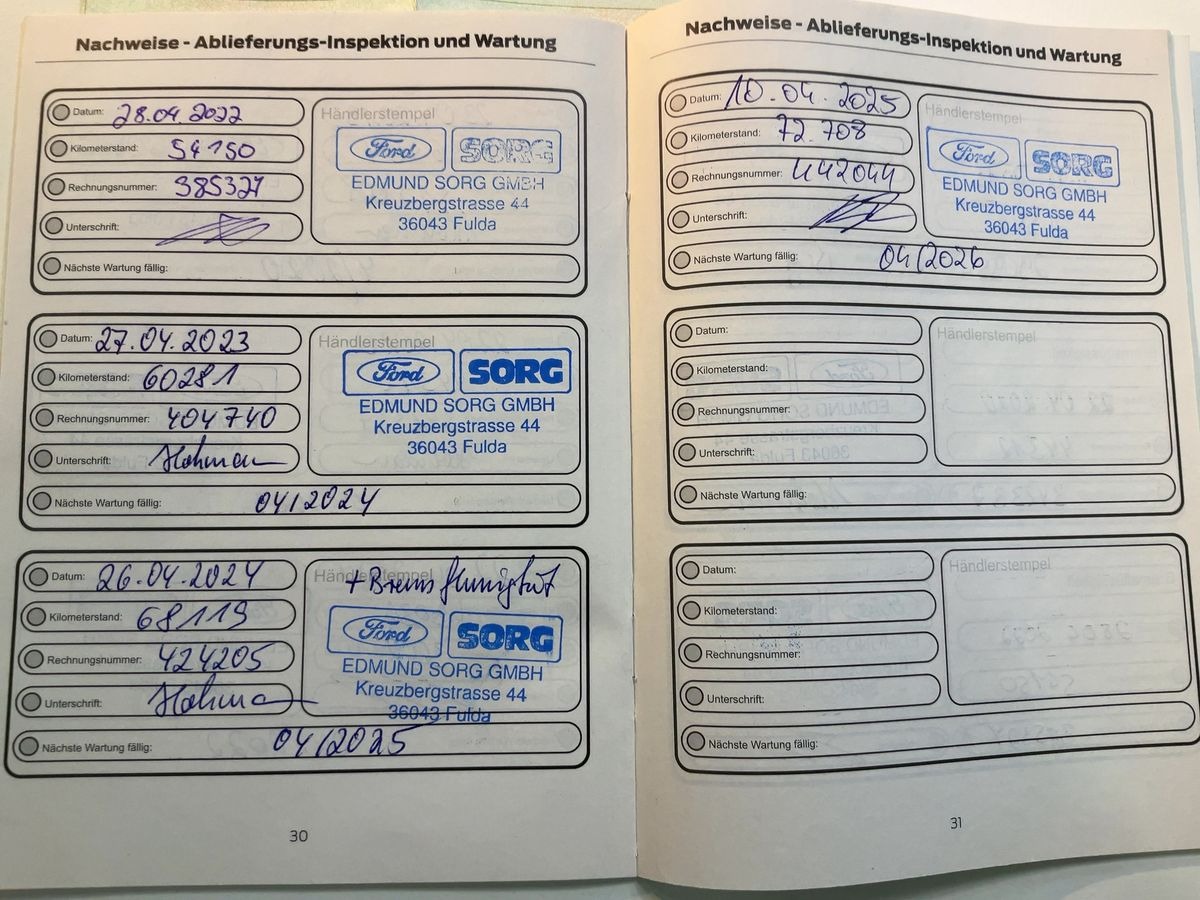 Nachweise - Ablieferungs-Inspektion und Wartung
Datum: 28.04.2022
Kilometerstand: 54150
Rechnungsnummer: 385327
Unterschrift:
Nächste Wartung fällig:
Händlerstempel
Ford SORG
EDMUND SORG GMBH
Kreuzbergstrasse 44
36043 Fulda
Datum: 27.04.2023
Kilometerstand: 60281
Rechnungsnummer: 404740
Unterschrift:
Nächste Wartung fällig: 04/2024
Händlerstempel
Ford SORG
EDMUND SORG GMBH
Kreuzbergstrasse 44
36043 Fulda
Datum: 26.04.2024
Kilometerstand: 68119
Rechnungsnummer: 424205
Unterschrift:
Nächste Wartung fällig: 04/2025
Händlerstempel
Ford SORG
EDMUND SORG GMBH
Kreuzbergstrasse 44
36043 Fulda
30
Nachweise - Ablieferungs-Inspektion und Wartung
Datum: 10.04.2025
Kilometerstand: 72.708
Rechnungsnummer: 442044
Unterschrift:
Nächste Wartung fällig: 04/2026
Händlerstempel
Ford SORG
EDMUND SORG GMBH
Kreuzbergstrasse 44
36043 Fulda
Datum:
Kilometerstand:
Rechnungsnummer:
Unterschrift:
Nächste Wartung fällig:
Händlerstempel
Datum:
Kilometerstand:
Rechnungsnummer:
Unterschrift:
Nächste Wartung fällig:
Händlerstempel
31